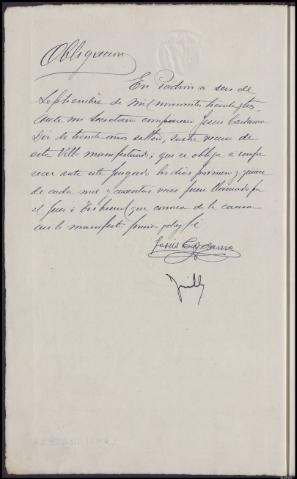 Obligacion
En Padron a seis de
Septiembre de mil novecientos treinta y tres
Ante mi Secretario comparece Jesus
de treinta años soltero, sastre vecino de
esta Villa manifestando; que se obliga a compa
recer ante este Juzgado los dias primero y quince
de cada mes y cuantas veces fuere llamado por
el Juez o Tribunal que conozca de la causa
asi lo manifesto firma y doy fe
Jesus